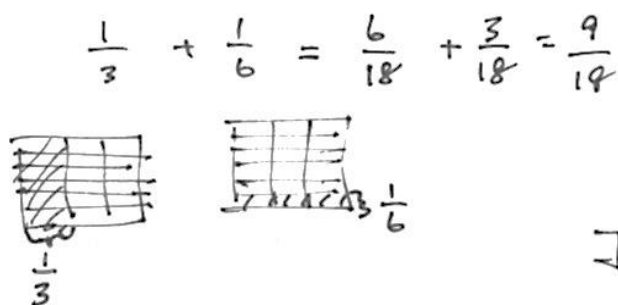 1/3 + 1/6 = 6/18 + 3/18 = 9/18
1/6
1/3